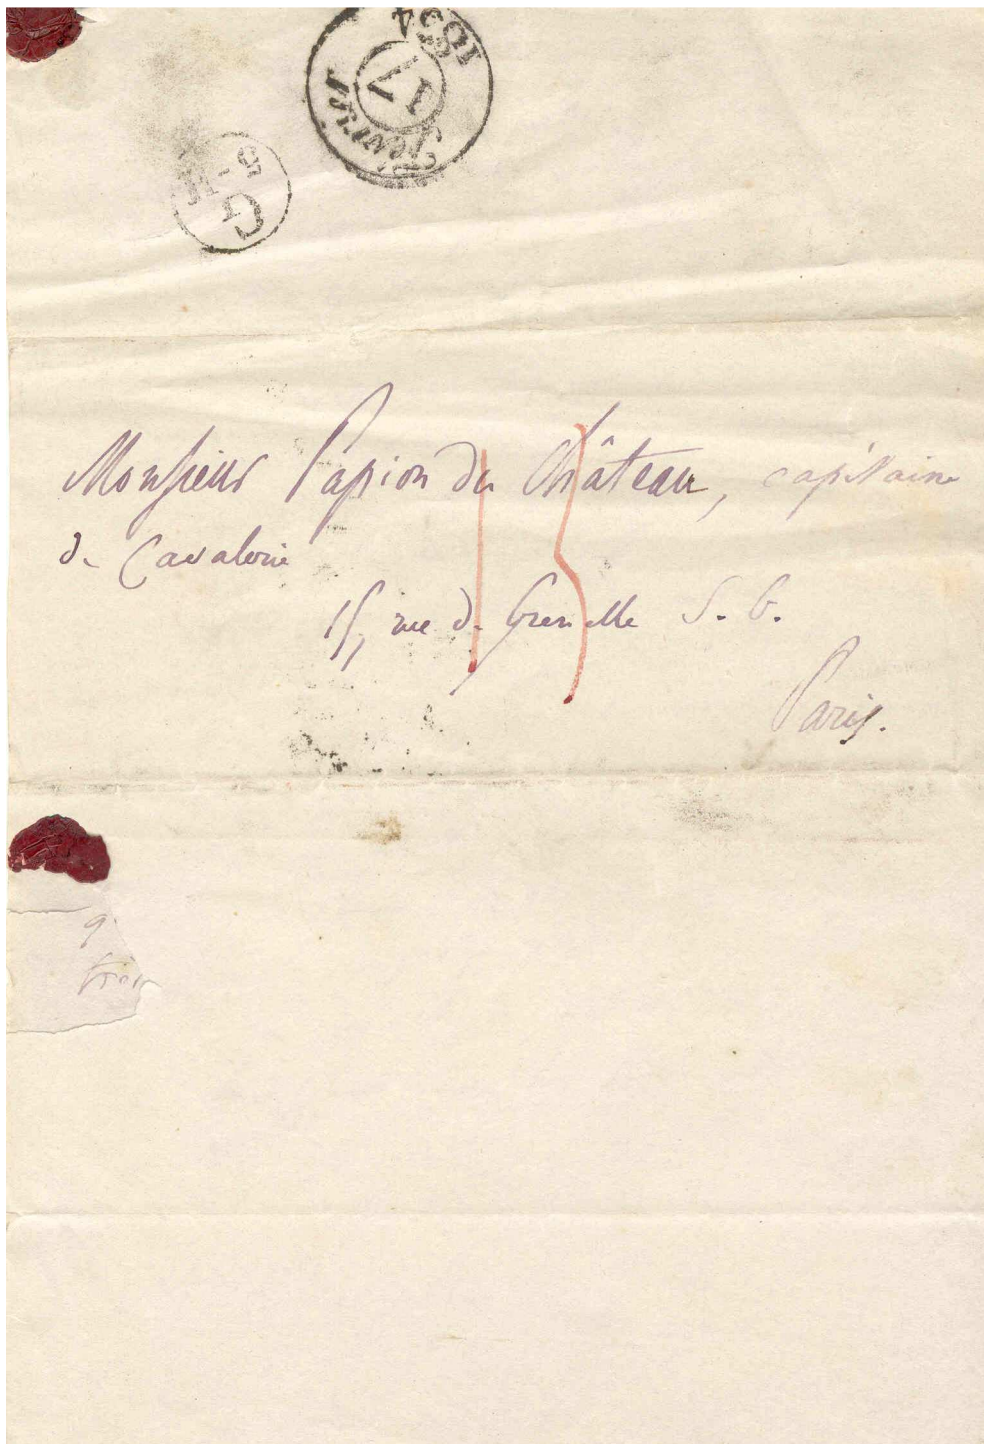 1834
17
Février
G
Monsieur Papion du Château, capitaine
de Cavalerie
15, rue de Grenelle S. G.
Paris.